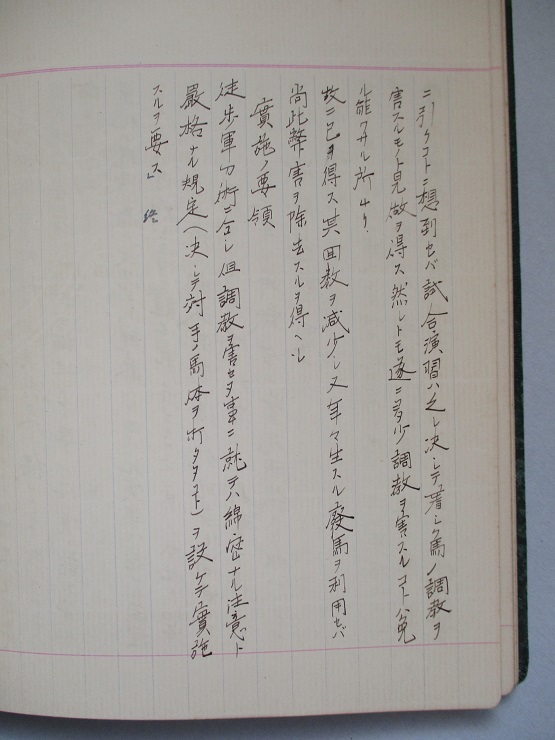 ニ引クコトニ想到セバ試合演習ハ之レ決シテ著シク馬ノ調教ヲ
害スルモノト見做ヲ得ス然レトモ遂ニ多少調教ヲ害スルコト免
ル能ハサル所ナリ
故ニ已ヲ得ス其回数ヲ減少シ又年々生スル廃馬ヲ利用セバ
尚此弊害ヲ除去スルヲ得ヘシ
實施ノ要領
徒歩軍刀術ニ仝シ但調教ヲ害セヌ事ニ就テハ綿密ナル注意ト
嚴格ナル規定(決シテ対手ノ馬体ヲ打タヌコト)ヲ設ケテ實施
スルヲ要ス」 終